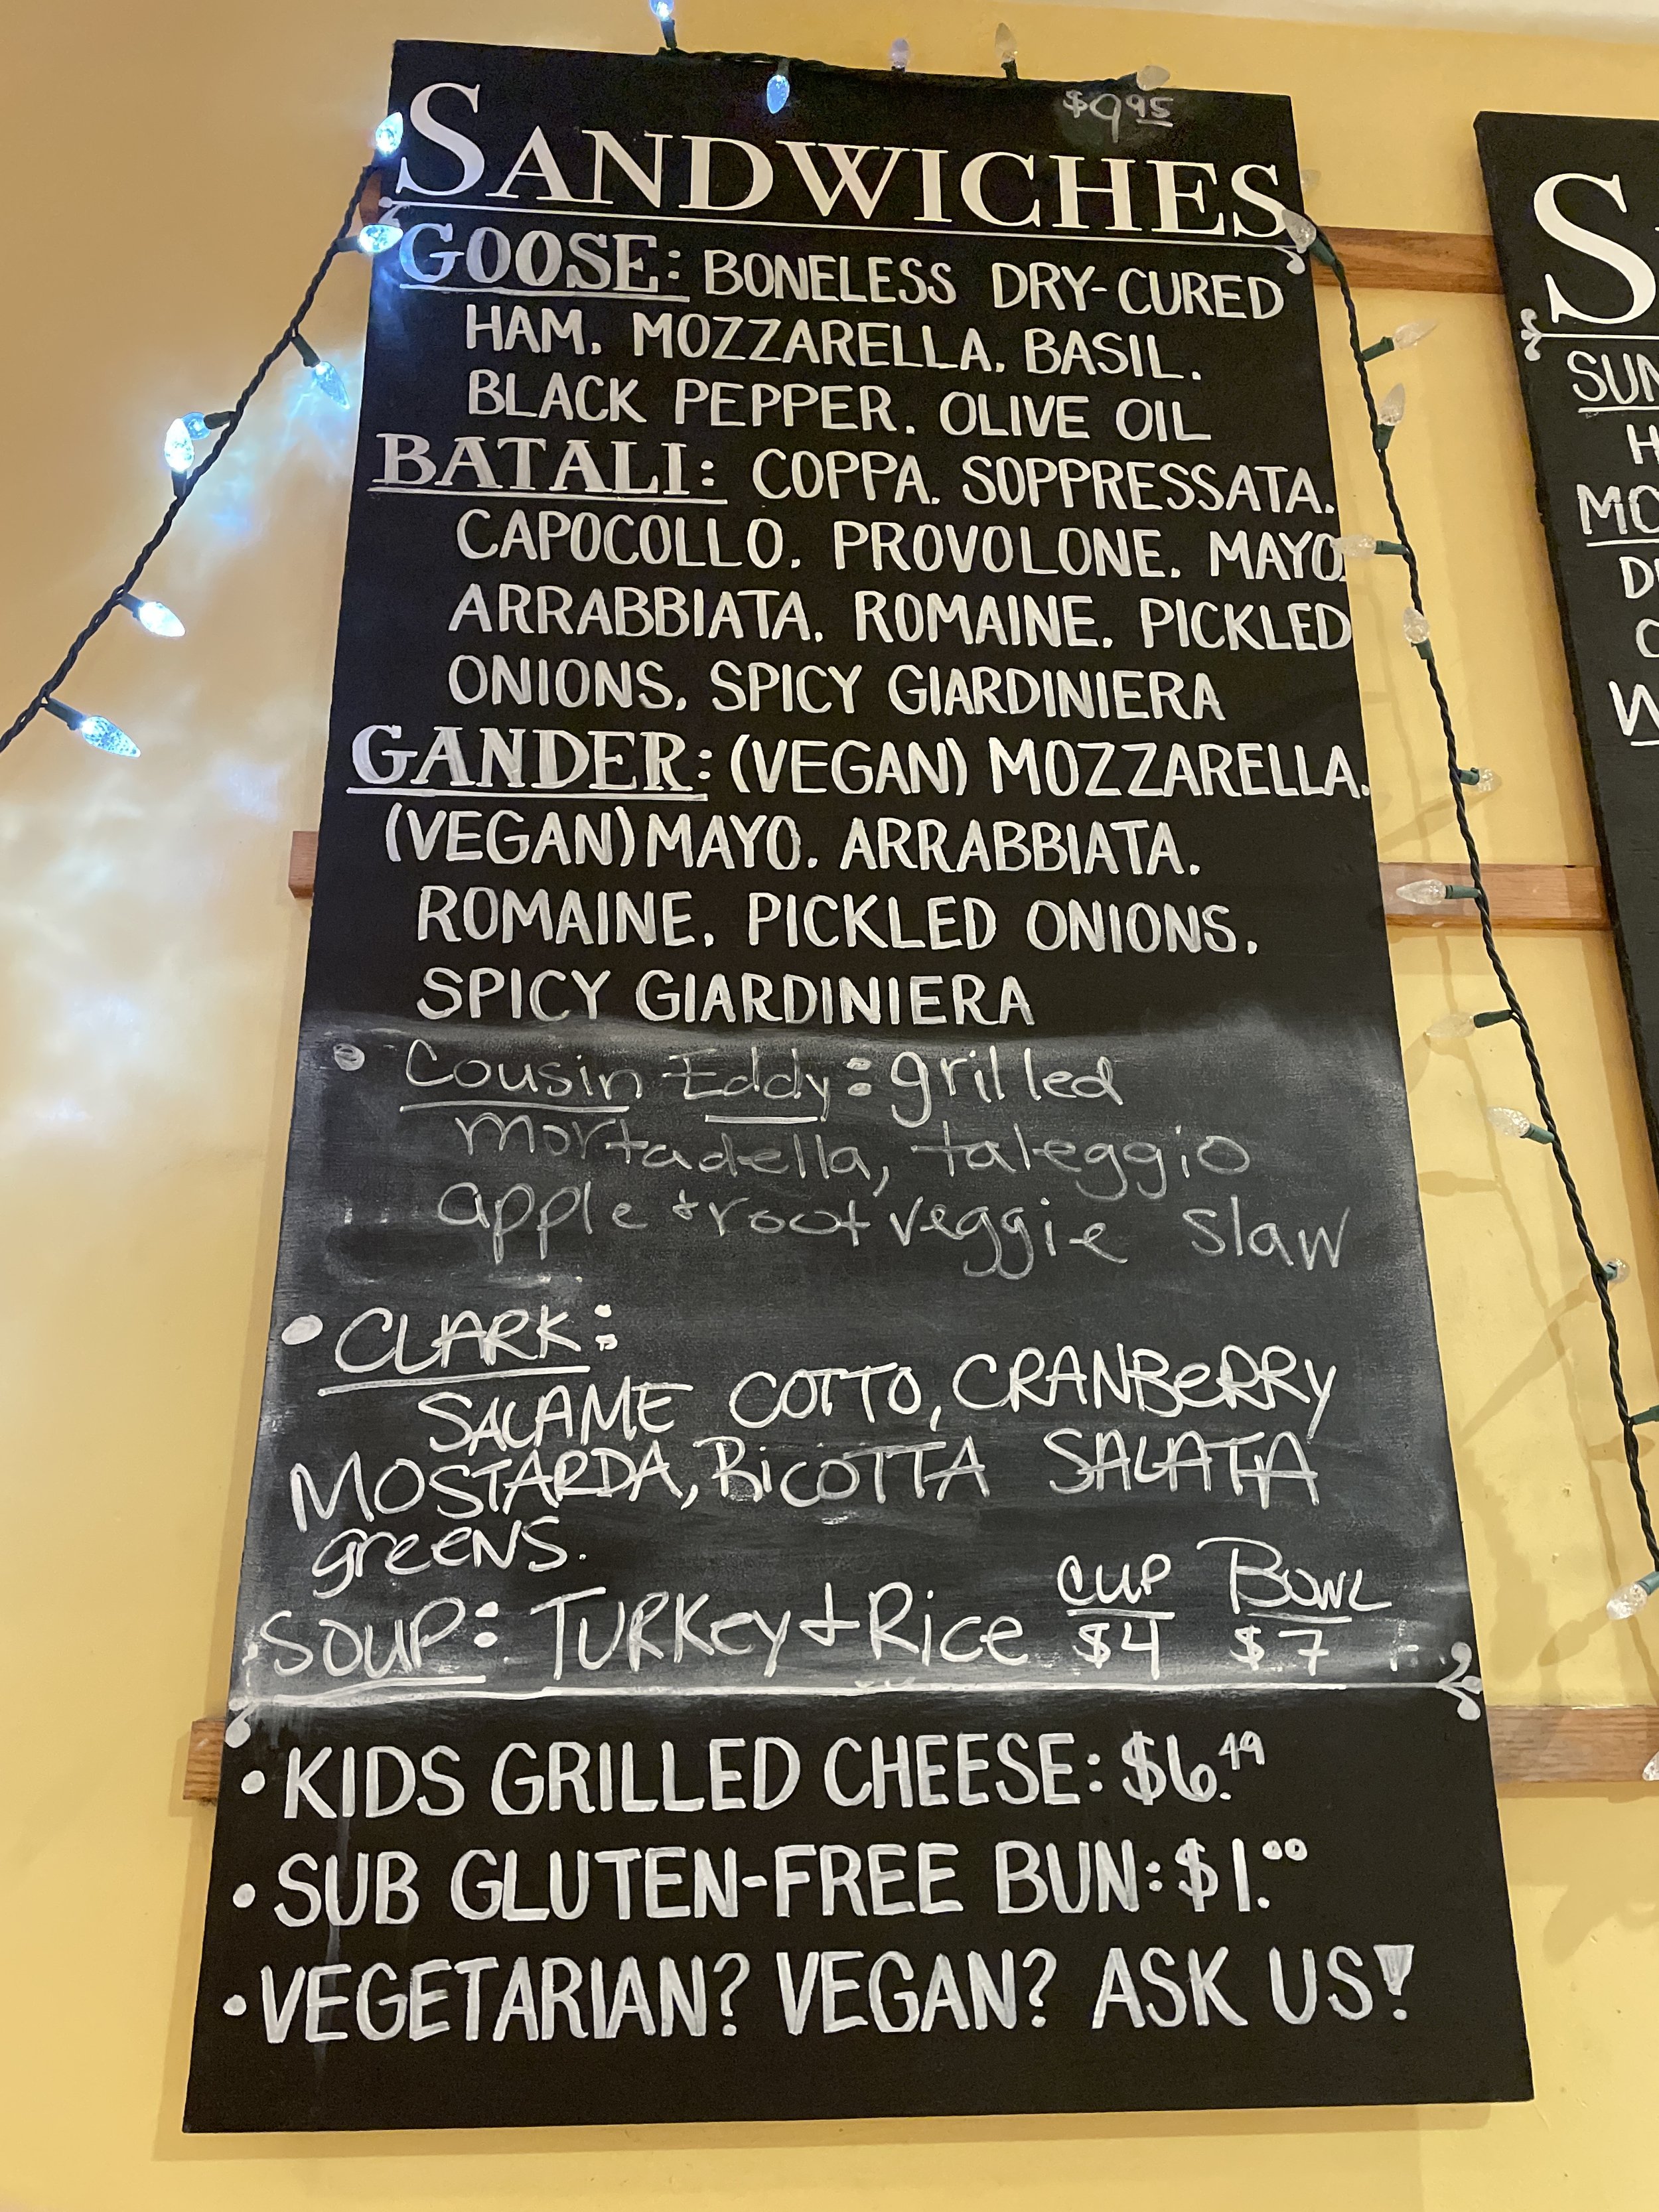 $9.95
SANDWICHES
GOOSE: BONELESS DRY-CURED
HAM. MOZZARELLA. BASIL.
BLACK PEPPER. OLIVE OIL
BATALI: COPPA. SOPPRESSATA.
CAPOCOLLO. PROVOLONE. MAYO.
ARRABBIATA. ROMAINE. PICKLED
ONIONS. SPICY GIARDINIERA
GANDER: (VEGAN) MOZZARELLA.
(VEGAN) MAYO. ARRABBIATA.
ROMAINE. PICKLED ONIONS.
SPICY GIARDINIERA
• Cousin Eddy: grilled
mortadella, taleggio
apple + root veggie slaw
• CLARK:
SALAME COTTO, CRANBeRRy
MOSTARDA, RicOTTA SALATA
greeNS.
SOUP: TURKey + Rice CUP $4 BOWL $7
• KIDS GRILLED CHEESE: $6.49
• SUB GLUTEN-FREE BUN: $1.00
• VEGETARIAN? VEGAN? ASK US!
S
SUN
H
MO
D
C
W